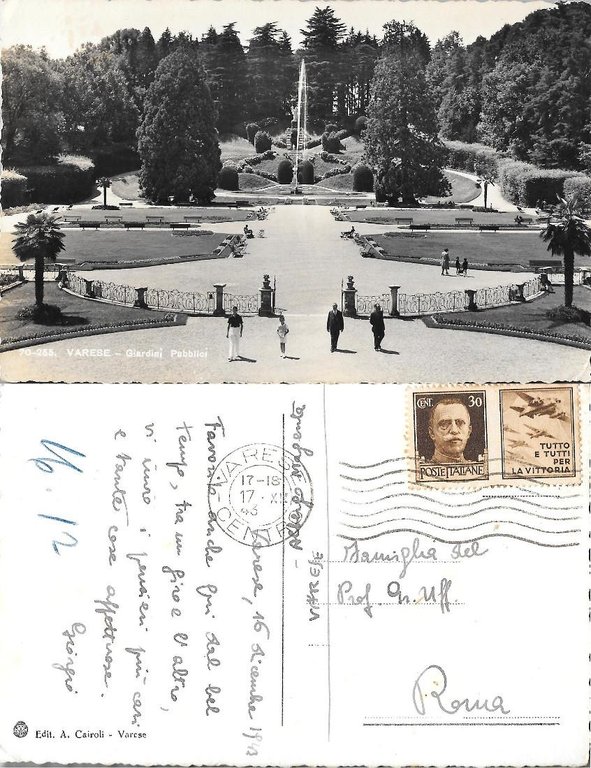 70-255. VARESE - Giardini Pubblici
CENT. 30
POSTE ITALIANE
TUTTO
E TUTTI
PER
LA VITTORIA
VARESE
17-18
17 · XII
43
CENTRO
Varese, 16 dicembre 1943
Favorito anche qui dal bel
tempo, tra un giro e l'altro,
vi invio i pensieri più cari
e tante cose affettuose.
Giorgio
16.12
Famiglia del
Prof. Gr. Uff.
Roma
Edit. A. Cairoli - Varese
VARESE